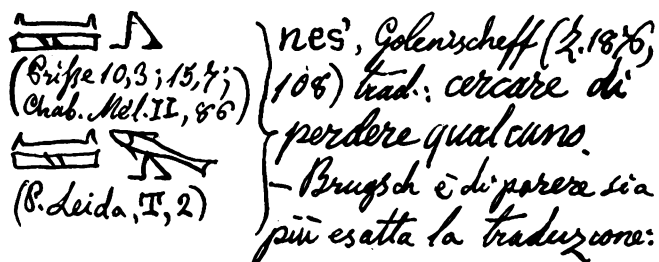 (Prisse 10,3; 15,7;
Chab. Mél. II, 86)
(P. Leida, I, 2)
nes', Golenischeff (Z. 1876,
108) trad.: cercare di
perdere qualcuno.
— Brugsch è di parere sia
più esatta la traduzione: